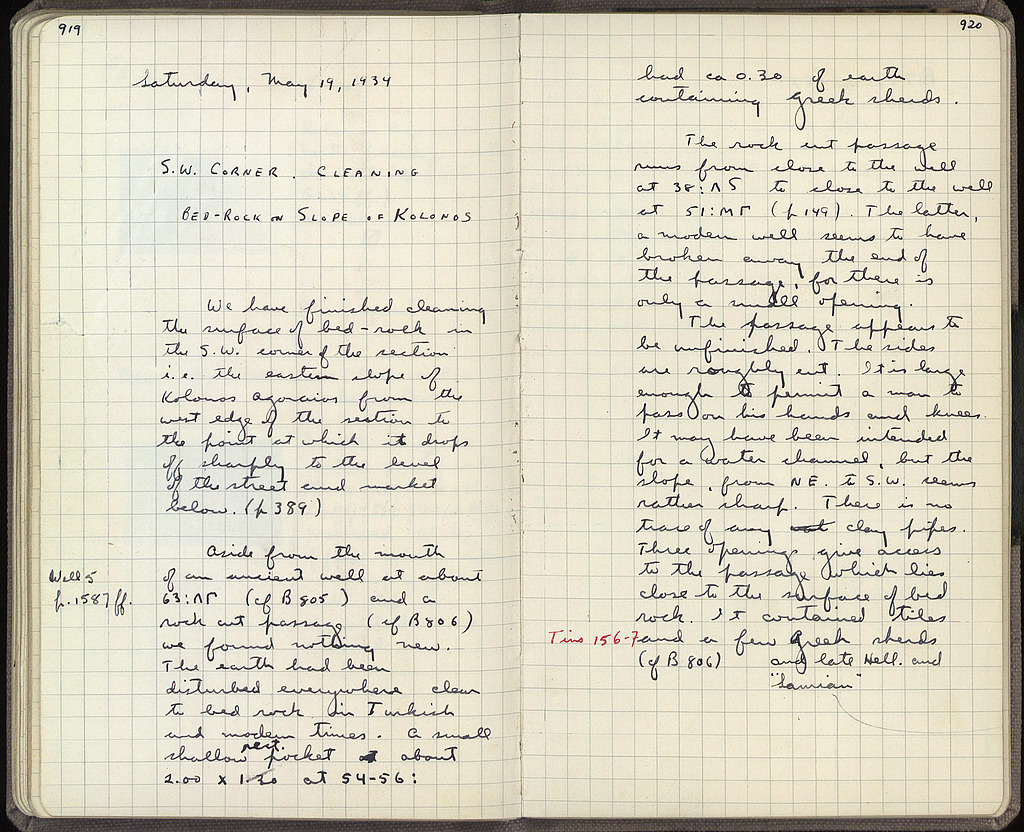 919
Saturday, May 19, 1934
S.W. CORNER. CLEANING
BED-ROCK ON SLOPE OF KOLONOS
We have finished cleaning
the surface of bed-rock in
the S.W. corner of the section
i.e. the eastern slope of
Kolonos Agoraios from the
west edge of the section to
the point at which it drops
off sharply to the level
of the street and market
below. (p 389)
Aside from the mouth
Well 5
of an ancient well at about
p. 1587 ff.
63:ΛΓ (cf B 805) and a
rock cut passage (cf B 806)
we found nothing new.
The earth had been
disturbed everywhere clear
to bed rock in Turkish
and modern times. A small
shallow rect. pocket about
2.00 x 1.20 at 54-56:
920
had ca 0.30 of earth
containing Greek sherds.
The rock cut passage
runs from close to the well
at 38:ΛS to close to the well
at 51:ΜΓ (p 149). The latter,
a modern well seems to have
broken away the end of
the passage, for there is
only a small opening.
The passage appears to
be unfinished. The sides
are roughly cut. It is large
enough to permit a man to
pass on his hands and knees.
It may have been intended
for a water channel, but the
slope, from NE. to S.W. seems
rather sharp. There is no
trace of any clay pipes.
Three openings give access
to the passage which lies
close to the surface of bed
rock. It contained tiles
Tins 156-7
and a few Greek sherds
(cf B 806) and late Hell. and
"Samian"